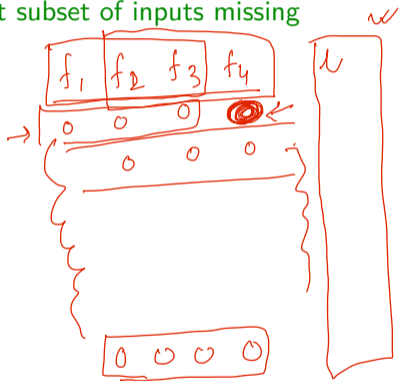 t subset of inputs missing
f1 f2 f3 f4
0 0 0
0 0 0
0 0 0 0